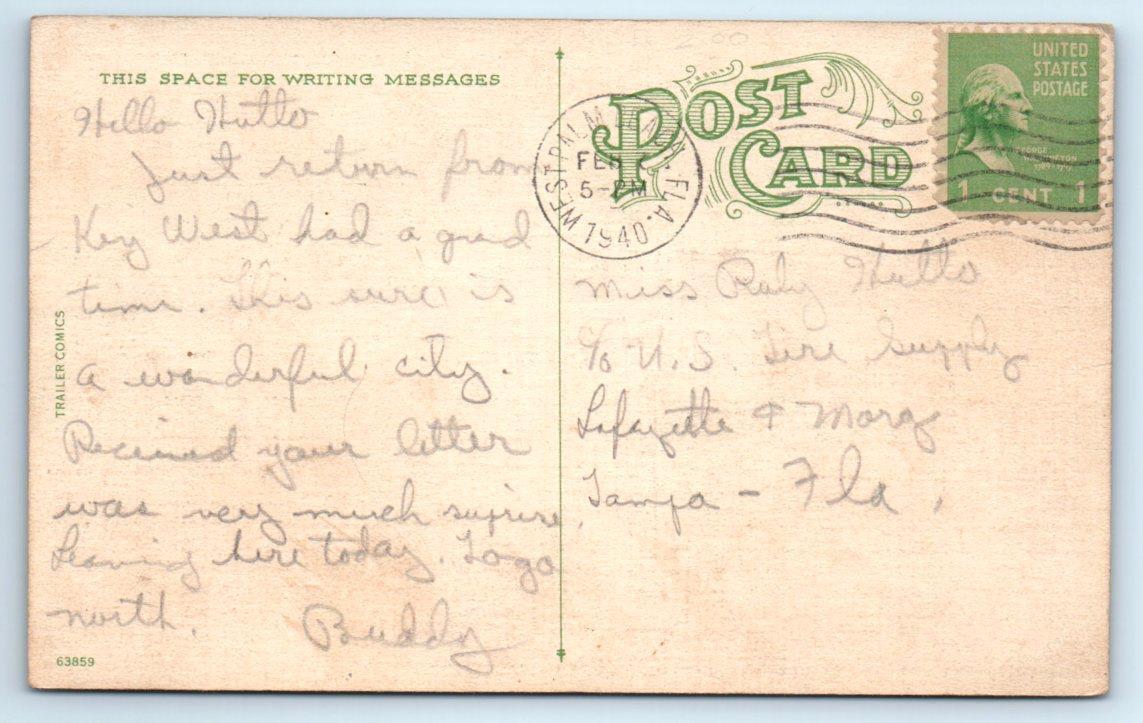 THIS SPACE FOR WRITING MESSAGES
Hello Hutto
Just return from
Key West had a good
time. This sure is
a wonderful city.
Received your letter
was very much suprise,
Leaving here today. To go
north.
Buddy
TRAILER COMICS
63859
POST CARD
WEST PALM BEACH, FLA.
FEB
5-PM
1940
UNITED
STATES
POSTAGE
GEORGE
WASHINGTON
1789-1797
1 CENT 1
Miss Ruby Hutto
c/o U.S. Tire Supply
Lafayette & Morg
Tampa - Fla,